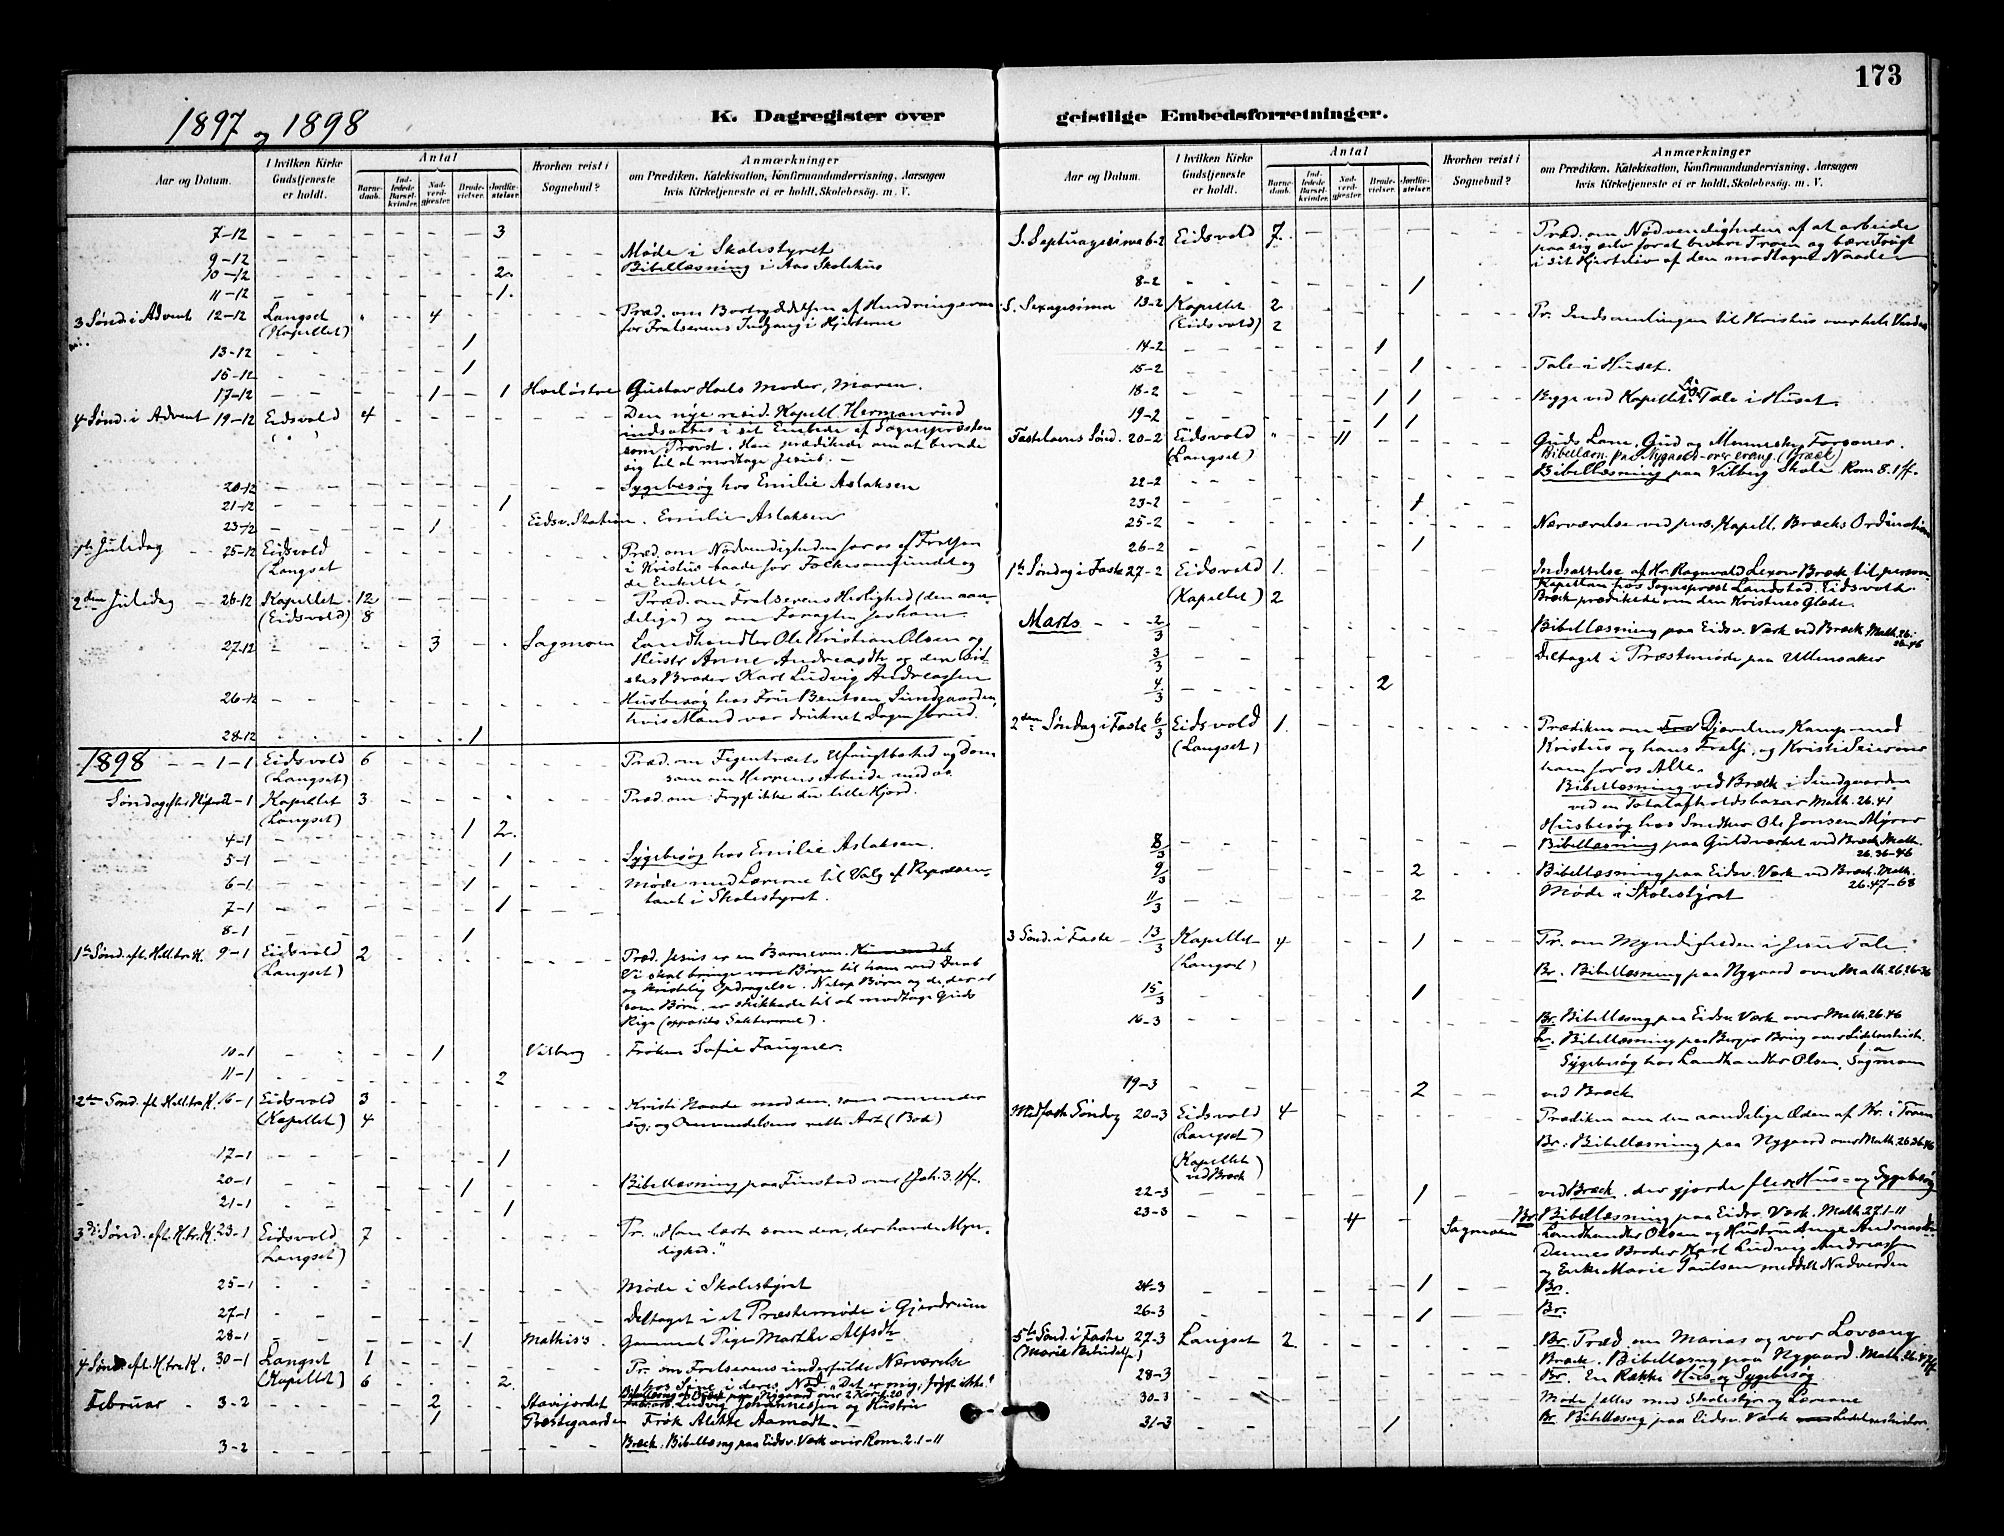 173
1897 og 1898
K. Dagregister over
geistlige Embedsforretninger.
Aar og Datum.
I hvilken Kirke Gudstjeneste er holdt.
Antal
Barnedaab.
Indledede Barselkvinder.
Nadverdgjester.
Brudevielser.
Jordfæstelser.
Hvorhen reist i Sognebud?
Anmærkninger
om Prædiken, Katekisation, Konfirmandundervisning, Aarsagen
hvis Kirketjeneste ei er holdt, Skolebesøg m. V.
7-12 3
9-12 Møde i Skolestyret
10-12 2. Bibellæsning i Aas Skolehus
11-12 1.
3 Sønd. i Advent 12-12 Langset 4 Præd. om Bortryddelsen af Hindringerne
(Kapellet) for Frelserens Indgang i Hjerterne
13-12 1
15-12 1
17-12 1 1 Gustav Hoels Moder, Maren.
4 Sønd. i Advent 19-12 Eidsvold 4 Den nye resid. Kapell. Hermanrud
indsattes i sit Embede af Sognepræsten
som Provst. Han prædikede om at berede
sig til at modtage Jesus. –
20-12 Sygebesøg hos Emilie Aslaksen
21-12 1
23-12 1 Eidsv. Station. Emilie Aslaksen
1ste Juledag 25-12 Eidsvold Præd. om Nødvendigheden for os af Frelsen
(Langset i Kristus baade for Folkesamfundet og
de Enkelte.
2den Juledag 26-12 Kapellet 12 Præd. om Frelserens Herlighed (den aan-
(Eidsvold) 8 delige) og om Foragten for ham.
27-12 3 Sagmoen Landhandler Ole Kristian Olsen og
Hustr Anne Andreasdtr og den
Broder Karl Ludvig Andreassen
26-12 Husbesøg hos Fru Bentsen Sundgaarden,
hvis Mand var druknet Dagen forud.
28-12 1
1898 1-1 Eidsvold 6 Præd. om Figentræets Ufrugtbarhed og Dom
(Langset) samt om Herrens Arbeide med os.
Søndag efter Nytaar 2-1 Kapellet 3 Præd. om: Frygt ikke du lille Hjord.
(Langset)
4-1 1 2.
5-1 1 Sygebesøg hos Emilie Aslaksen.
6-1 1 Møde med Lærerne til Valg af Repræsen-
7-1 1 tant i Skolestyret.
8-1 1
1ste Sønd. eft. Hell. tre K. 9-1 Eidsvold 2 Præd. Jesus er en Barneven.
(Langset) Vi skal bringe vore Børn til ham ved Daab
og kristelig Opdragelse. Netop Børn og de, der er
som Børn, er skikkede til at modtage Guds
Rige (opposita Sekterernes).
10-1 1 Vilberg Frøken Sofie Fougner.
11-1 2
2den Sønd. eft Hell. tre K. 16-1 Eidsvold 3 Kristi Naade mod den, som omvender
(Kapellet) 4 sig, og Omvendelsens rette Art (Bod)
17-1 1
20-1 1 Bibellæsning paa Finstad over Joh. 3. 1 ff.
21-1 1
3die Sønd. eft. H. tr. K. 23-1 Eidsvold 7 Pr. "Han lærte som den, der havde Myn-
(Langset) dighed."
25-1 Møde i Skolestyret
27-1 Deltaget i et Præstemøde i Gjerdrum
28-1 1 Mathis's Gammel Pige Marthe Alfsdtr
4 Sønd. eft. H. tre K. 30-1 Langset 1 Pr. om Frelserens underfulde Nærværelse
(Kapellet) 6 2. hos Sine i deres Nød. "Det er mig, frygt ikke!"
Februar 3-2 2 Stavijordet Ludvig Johannessen og Hustru
1 Præstegaarden Frøk Alette Aamodt. –
3-2 Bræck: Bibellæsng paa Eidsv. Værk over Rom. 2. 1-11
S. Septuagesima 6-2 Eidsvold 7. Præd. om Nødvendigheden af at arbeide
paa sig selv for at bevare Troen og bære Frugt
i sit Hjerteliv af den modtagne Naade
8-2 1
S. Sexagesima 13-2 Kapellet 2 Pr. Indsamlingen til Kristus over hele Verden
(Eidsvold) 2
14-2 1
15-2 1 Tale i Huset.
18-2 1 1 Bygge ved Kapellet. Tale i Huset.
19-2 1 1
Fastelavns Sønd. 20-2 Eidsvold 11 Guds Lam, Gud og Menneskes Forsoner.
(Langset) Bibellæsn. paa Nygaard over evang. (Bræck)
22-2 Bibellæsning paa Vilberg Skole. Rom 8. 1 ff.
23-2 1
25-2 Nærværelse ved pers. Kapell. Bræcks Ordination
26-2 1
1ste Søndag i Faste 27-2 Eidsvold 1. Indsættelse af Hr. Ragnvald Lexow Bræck til person.
(Kapellet) 2 Kapellan hos Sognepræst Landstad, Eidsvold.
Bræck prædikede om den Kristnes Glæde.
Marts 2/3 Bibellæsning paa Eidsv. Værk ved Bræck Math. 26. 36-46
3/3 Deltaget i Præstemøde paa Ullensaker
4/3 2
2den Søndag i Faste 6/3 Eidsvold 1. Prædiken om Djævelens Kamp mod
(Langset) Kristus og hans Frelse, og Kristi Seier over
ham for os Alle.
Bibellæsning ved Bræck i Sundgaarden
ved en Totalafholdsbazar Math. 26. 41
Husbesøg hos Snedker Ole Jonsen Myrer
8/3 Bibellæsning paa Guldværket ved Bræck Math.
26. 36-46
9/3 2 Bibellæsning paa Eidsv. Værk ved Bræck. Math.
26. 47-68
11/3 2 Møde i Skolestyret
3 Sønd. i Faste 13/3 Kapellet 4 1 Pr. om Myndigheden i Jesu Tale
(Langset) Br. Bibellæsning paa Nygaard over Math. 26. 26-36
15/3 1
16-3 Br. Bibellæsng paa Eidsv. Værk over Math. 26. 46
Bibellæsning paa Berger Bring over Lidelseshist.
Sygebesøg hos Landhandler Olsen, Sagmoen
19-3 2 ved Bræck
Midfaste Søndag 20-3 Eidsvold 4 Prædiken om den aandelige Æden af Kr. i Troen
(Langset) Br: Bibellæsning paa Nygaard over Math. 26 36-46
(Kapellet
ved Bræck)
22-3 1 ved Bræck, der gjorde flere Hus- og Sygebesøg
23-3 4 Br. Bibellæsning paa Eidsv. Værk. Math. 27. 1-11
Sagmoen Landhandler Olsen og Hustru Anne Andreasdtr.
Dennes Broder Karl Ludvig Andreassen
og Enke Marie Paulsen meddelt Nadverden
24-3 1 Br.
26-3 1 Br.
5te Sønd. i Faste 27-3 Langset 2. Br. Præd. om Marias og vor Lovsang
(Mariæ Bebudelse) Bræck. Bibellæsng paa Nygaard. Math. 26. 47 ff
28-3 Br. En Række Hus og Sygebesøg
30-3 Møde fælles med Skolestyr og Lærerne
31-3 1 Br. Bibellæsng paa Eidsv. Værk Lidelseshistorien